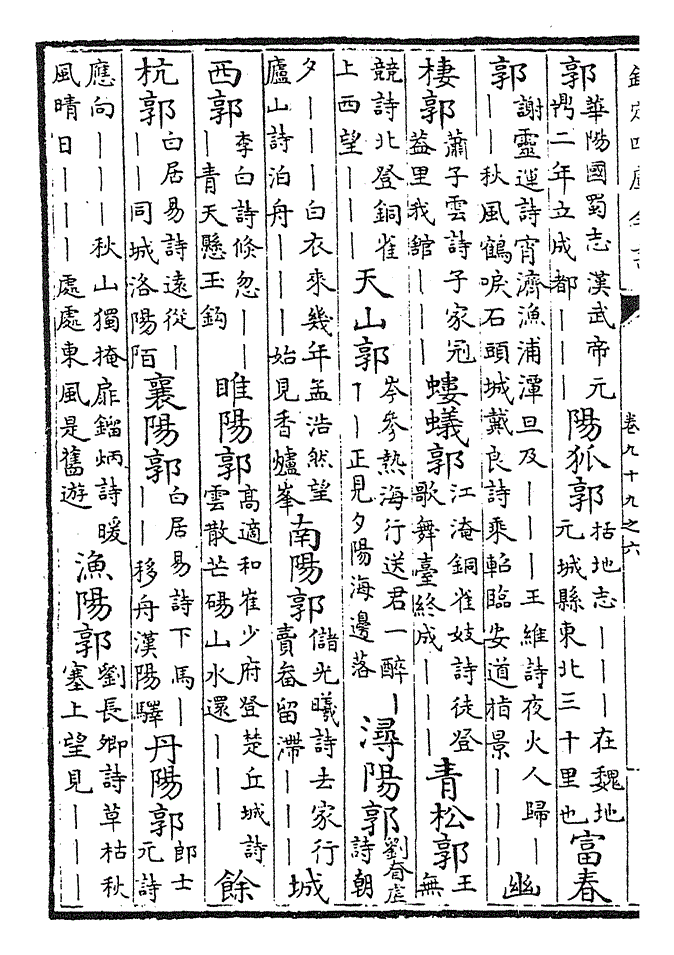 欽定四庫全書
卷九十九之六
郭華陽國蜀志漢武帝元鼎二年立成都｜｜｜陽狐郭括地志｜｜｜在魏地元城縣東北三十里也富春
郭謝靈運詩宵濟漁浦潭旦及｜｜｜王維詩夜火人歸｜｜｜秋風鶴唳石頭城戴良詩乘軺臨安道指景｜｜｜幽
棲郭蕭子雲詩子家冠蓋里我館｜｜｜螻蟻郭江淹銅雀妓詩徒登歌舞臺終成｜｜｜青松郭王無
競詩北登銅雀上西望｜｜｜天山郭岑參熱海行送君一醉｜｜｜正見夕陽海邊落潯陽郭劉眘虛詩朝
夕｜｜｜白衣來幾年孟浩然望廬山詩泊舟｜｜｜始見香爐峯南陽郭儲光曦詩去家行賣畚留滯｜｜｜城
西郭李白詩倐忽｜｜｜青天懸玉鈎睢陽郭高適和崔少府登楚丘城詩雲散芒碭山水還｜｜｜餘
杭郭白居易詩遠從｜｜｜同城洛陽陌襄陽郭白居易詩下馬｜｜｜移舟漢陽驛丹陽郭郎士元詩
應向｜｜｜秋山獨掩扉鎦炳詩暖風晴日｜｜｜處處東風是舊遊漁陽郭劉長卿詩草枯秋塞上望見｜｜｜